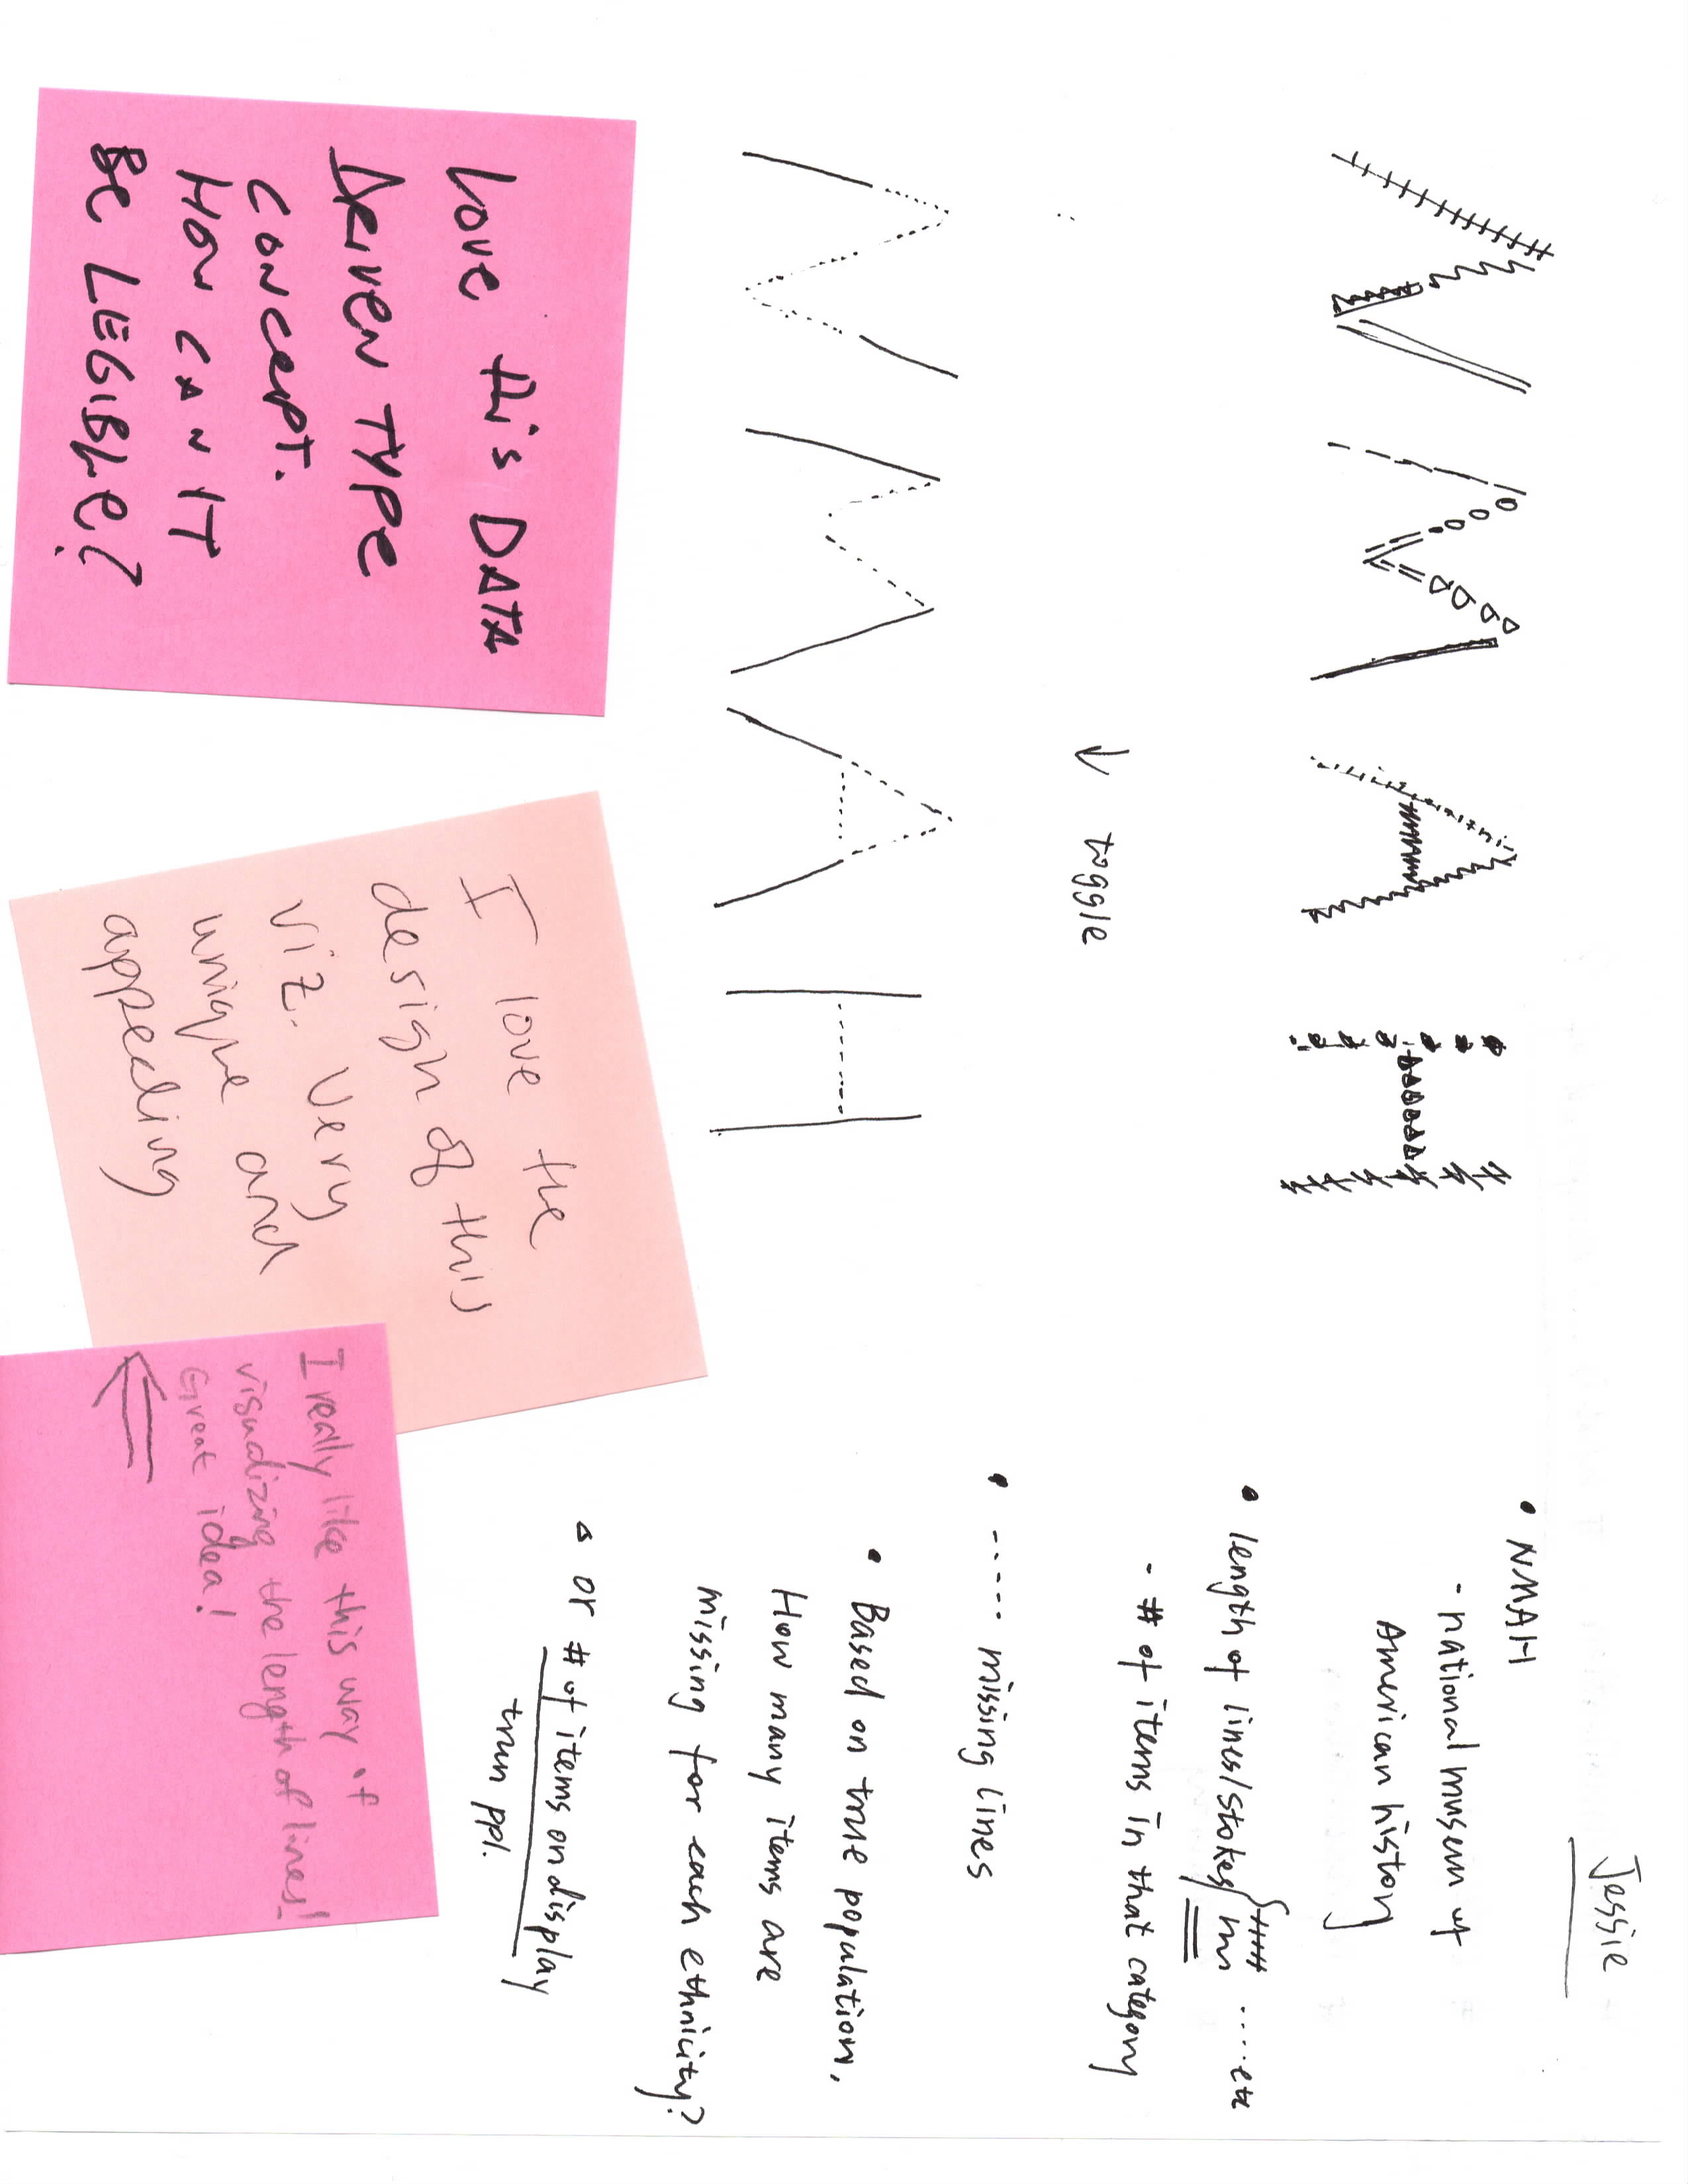 Jessie
NMAH
NMAH
- national museum of
American history
length of lines/stokes ....etc
- # of items in that category
toggle
NMAH
----- missing lines
Based on true population,
How many items are
missing for each ethnicity?
or # of items on display
ppl.
Love this DATA
DRIVEN TYPE
CONCEPT.
HOW CAN IT
BE LEGIBLE?
I love the
design of this
viz. Very
unique and
appealing
I really like this way of
visualizing the length of lines!
Great idea!